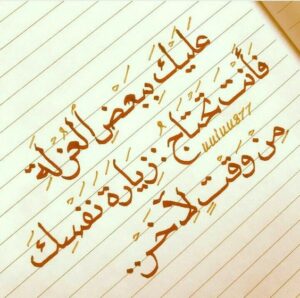 عَلَيْكَ بِبَعْضِ الْعُزْلَةِ
فَأَنْتَ تَحْتَاجُ .. زِيَارَةَ نَفْسِكَ
مِنْ وَقْتٍ لِآخَرَ ..